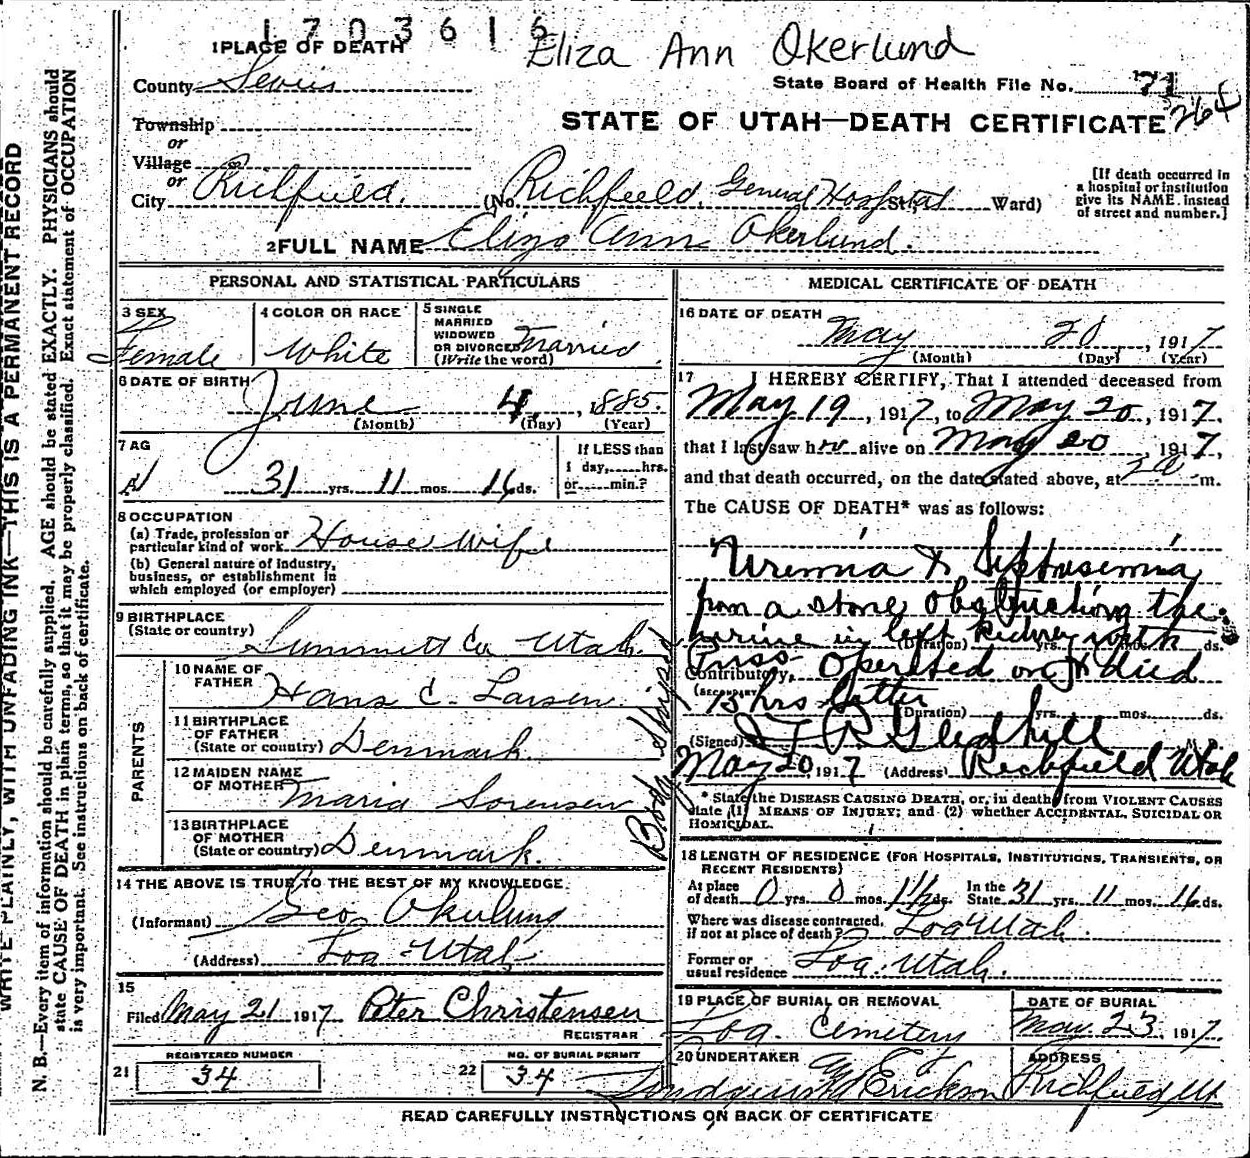 1703616
Eliza Ann Okerlund
1 PLACE OF DEATH
County Sevier
State Board of Health File No. 71
264
Township
or
Village
or
City Richfield.
STATE OF UTAH—DEATH CERTIFICATE
(No. Richfield General Hospital St., Ward)
[If death occurred in
a hospital or institution
give its NAME instead
of street and number.]
2 FULL NAME Eliza Ann Okerlund.
PERSONAL AND STATISTICAL PARTICULARS
3 SEX
Female
4 COLOR OR RACE
White
5 SINGLE
MARRIED
WIDOWED
OR DIVORCED
(Write the word)
Married
6 DATE OF BIRTH
June 4, 1885.
(Month) (Day) (Year)
7 AG
31 yrs. 11 mos. 16 ds.
If LESS than
1 day, hrs.
or min.?
8 OCCUPATION
(a) Trade, profession or
particular kind of work House wife
(b) General nature of industry,
business, or establishment in
which employed (or employer)
9 BIRTHPLACE
(State or country) Summitt Co Utah.
PARENTS
10 NAME OF
FATHER Hans C. Larsen
11 BIRTHPLACE
OF FATHER
(State or country) Denmark.
12 MAIDEN NAME
OF MOTHER Maria Sorensen
13 BIRTHPLACE
OF MOTHER
(State or country) Denmark.
14 THE ABOVE IS TRUE TO THE BEST OF MY KNOWLEDGE
(Informant) Geo Okerlund
(Address) Loa Utah
15
Filed May 21 1917 Peter Christensen
REGISTRAR
REGISTERED NUMBER
21 34
NO. OF BURIAL PERMIT
22 34
MEDICAL CERTIFICATE OF DEATH
16 DATE OF DEATH
May 20, 1917
(Month) (Day) (Year)
17 I HEREBY CERTIFY, That I attended deceased from
May 19, 1917, to May 20, 1917,
that I last saw her alive on May 20 1917,
and that death occurred, on the date stated above, at 2 a m.
The CAUSE OF DEATH* was as follows:
Uremia & Septasemia
from a stone obstructing the
urine in left kidney with
(Duration) yrs. mos. ds.
Puss. Operated on & died
Contributory
(SECONDARY)
15 hrs latter
(Duration) yrs. mos. ds.
(Signed) J. R. Gledhill M. D.
May 20 1917 (Address) Richfield Utah
Body Shipped
* State the DISEASE CAUSING DEATH, or, in death from VIOLENT CAUSES
state (1) MEANS OF INJURY; and (2) whether ACCIDENTAL, SUICIDAL OR
HOMICIDAL.
18 LENGTH OF RESIDENCE (FOR HOSPITALS, INSTITUTIONS, TRANSIENTS, OR
RECENT RESIDENTS)
At place
of death 0 yrs. 0 mos. 1½ ds. In the
State 31 yrs. 11 mos. 16 ds.
Where was disease contracted,
if not at place of death? Loa Utah.
Former or
usual residence Loa. Utah.
19 PLACE OF BURIAL OR REMOVAL
Loa. Cemetery
DATE OF BURIAL
May 23, 1917.
20 UNDERTAKER
Erickson
ADDRESS
Richfield Ut
READ CAREFULLY INSTRUCTIONS ON BACK OF CERTIFICATE
WRITE PLAINLY, WITH UNFADING INK—THIS IS A PERMANENT RECORD
N. B.—Every item of information should be carefully supplied. AGE should be stated EXACTLY. PHYSICIANS should
state CAUSE OF DEATH in plain terms, so that it may be properly classified. Exact statement of OCCUPATION
is very important. See instructions on back of certificate.